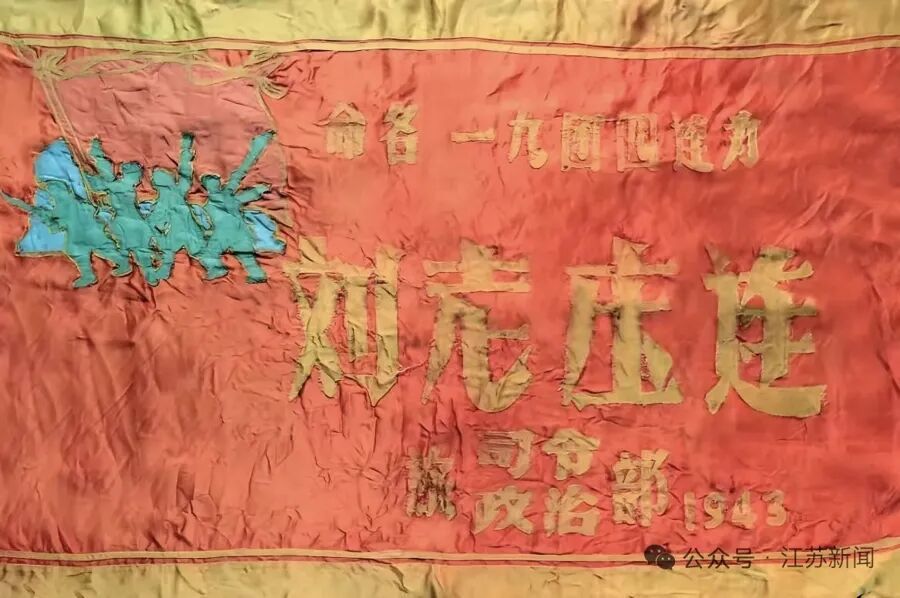 命名 一九团四连为
刘老庄连
司令
政治部 1943
公众号·江苏新闻